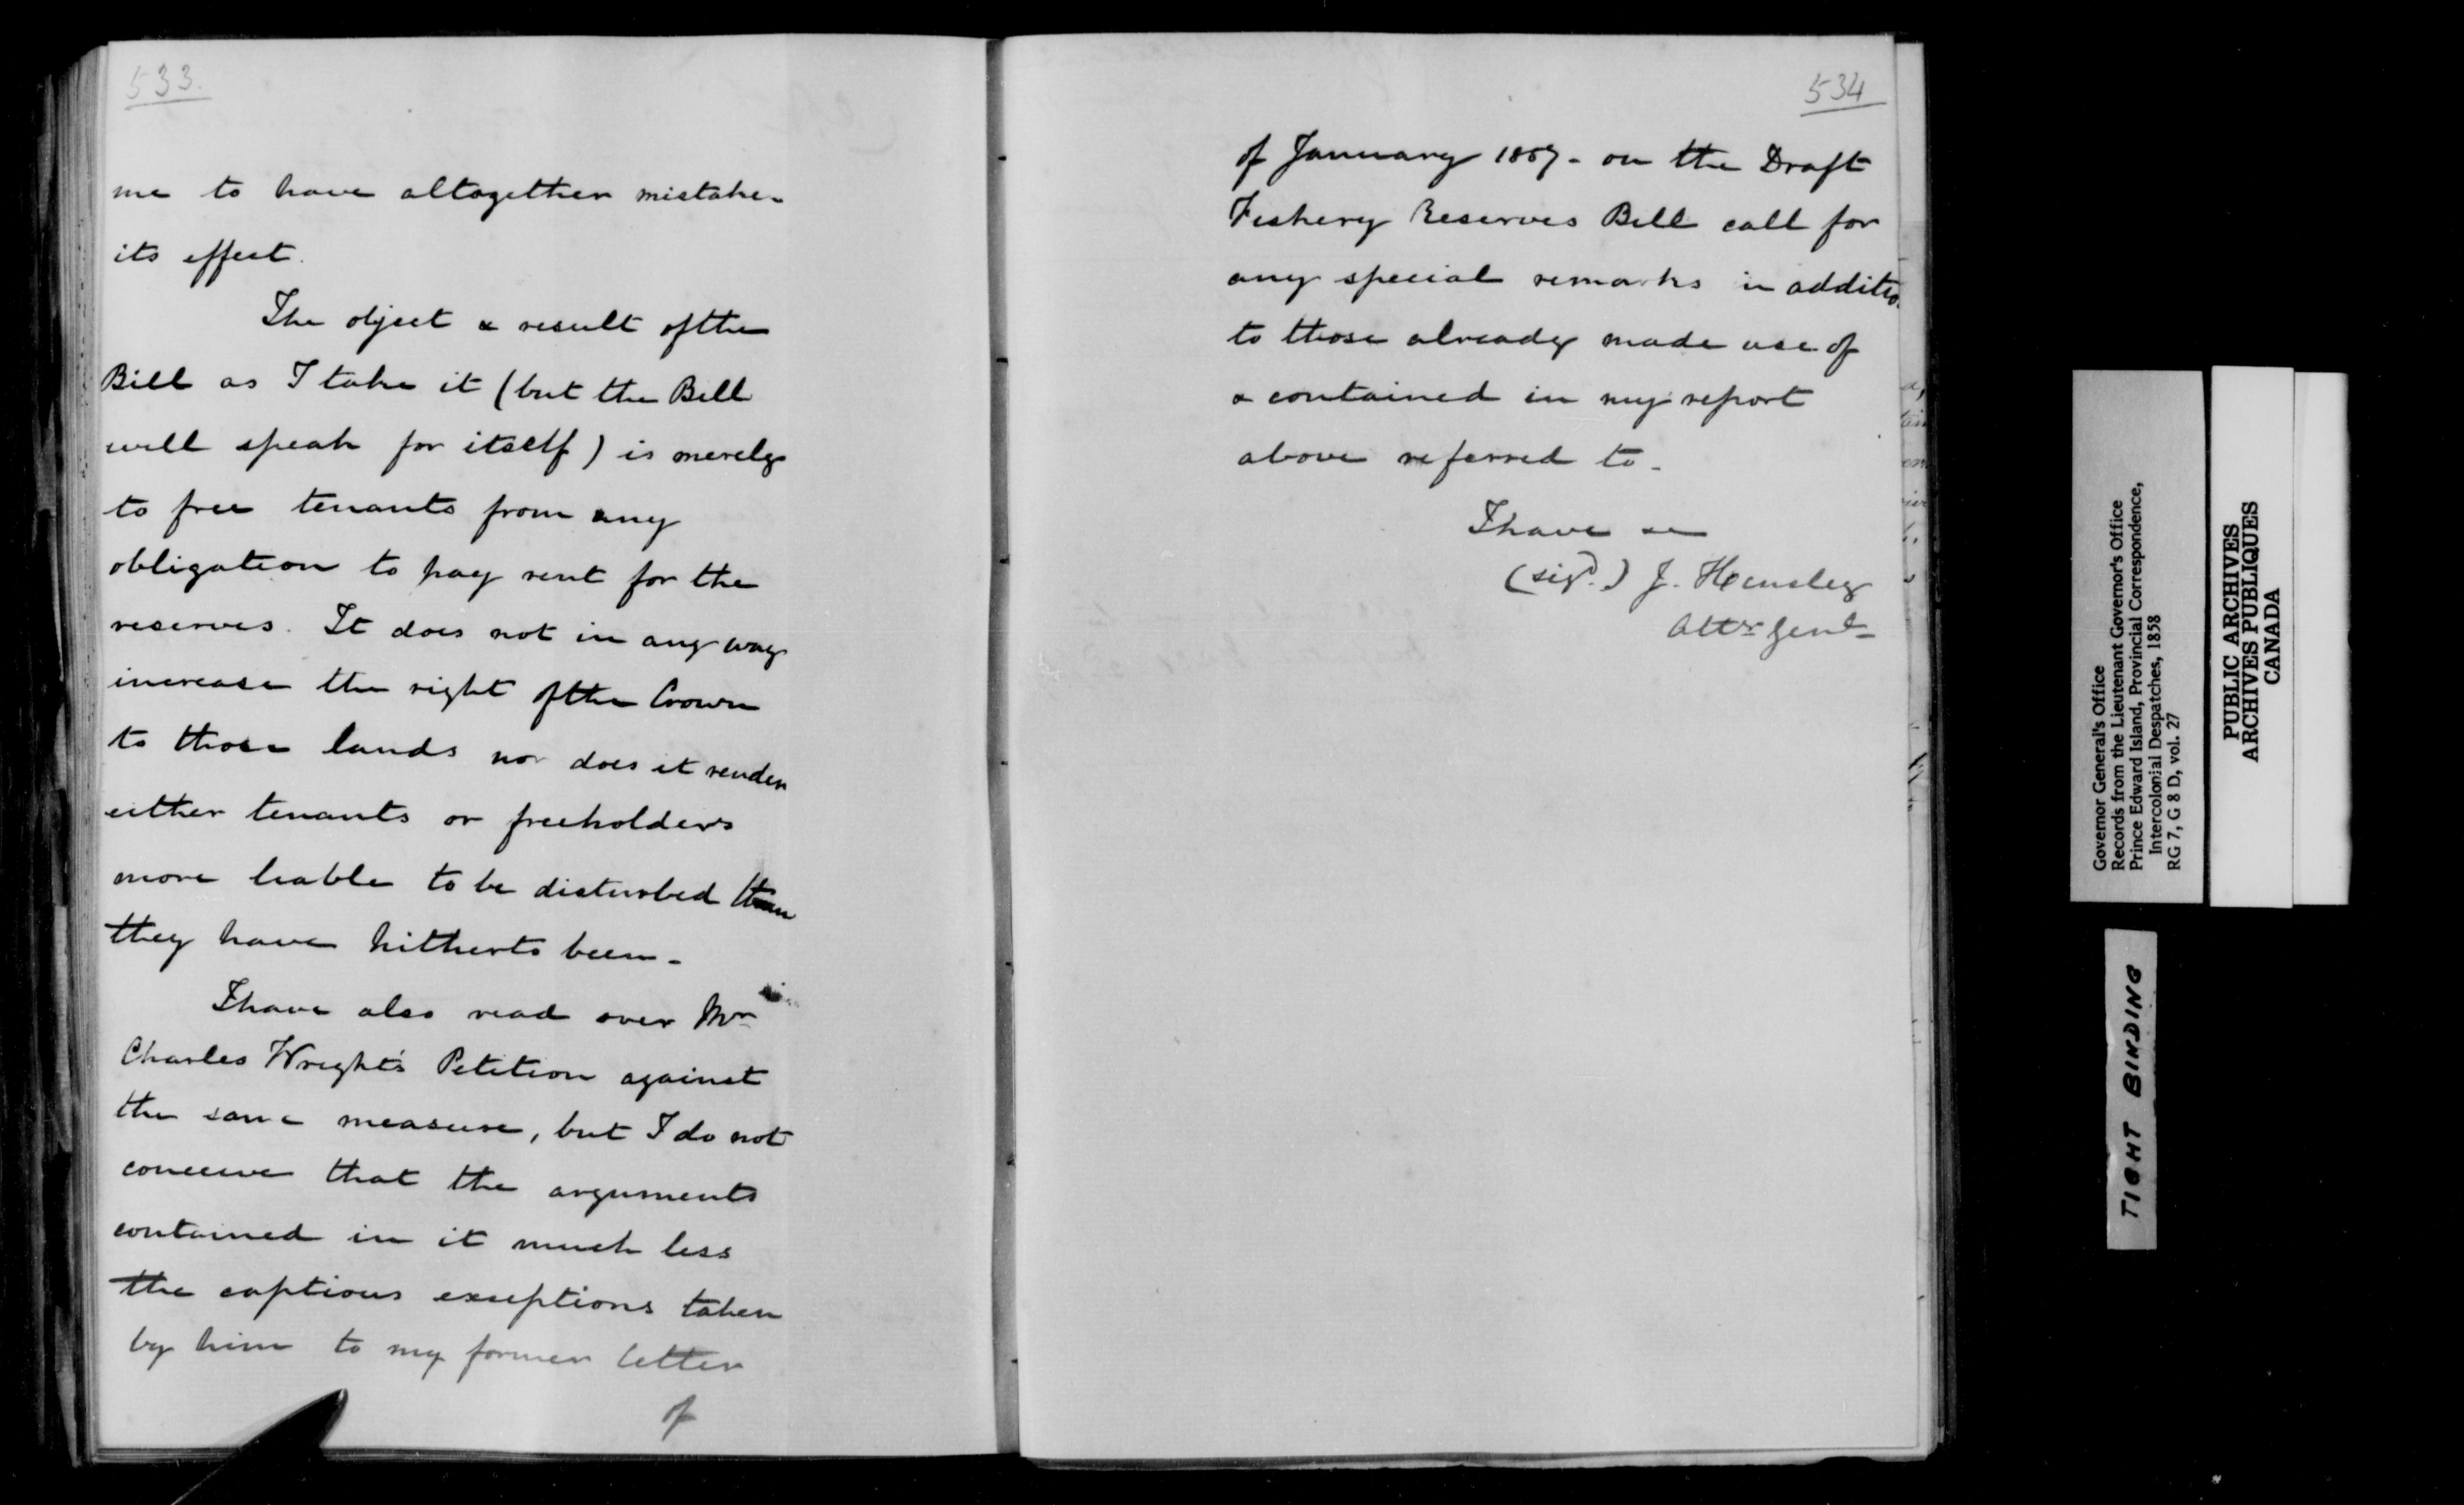 533.
me to have altogether mistaken
its effect.
The object & result of the
Bill as I take it (but the Bill
will speak for itself) is merely
to free tenants from any
obligation to pay rent for the
reserves. It does not in any way
increase the right of the Crown
to those lands nor does it render
either tenants or freeholders
more liable to be disturbed than
they have hitherto been -
I have also read over Mr
Charles Wright's Petition against
the same measure, but I do not
conceive that the arguments
contained in it much less
the captious exceptions taken
by him to my former letter
of
534
of January 1857 - on the Draft
Fishery Reserves Bill call for
any special remarks in additio
to those already made use of
& contained in my report
above referred to -
I have &c
(sigd.) J. Hensley
Atty Genl
Governor General's Office
Records from the Lieutenant Governor's Office
Prince Edward Island, Provincial Correspondence,
Intercolonial Despatches, 1858
RG 7, G 8 D, vol. 27
PUBLIC ARCHIVES
ARCHIVES PUBLIQUES
CANADA
TIGHT BINDING